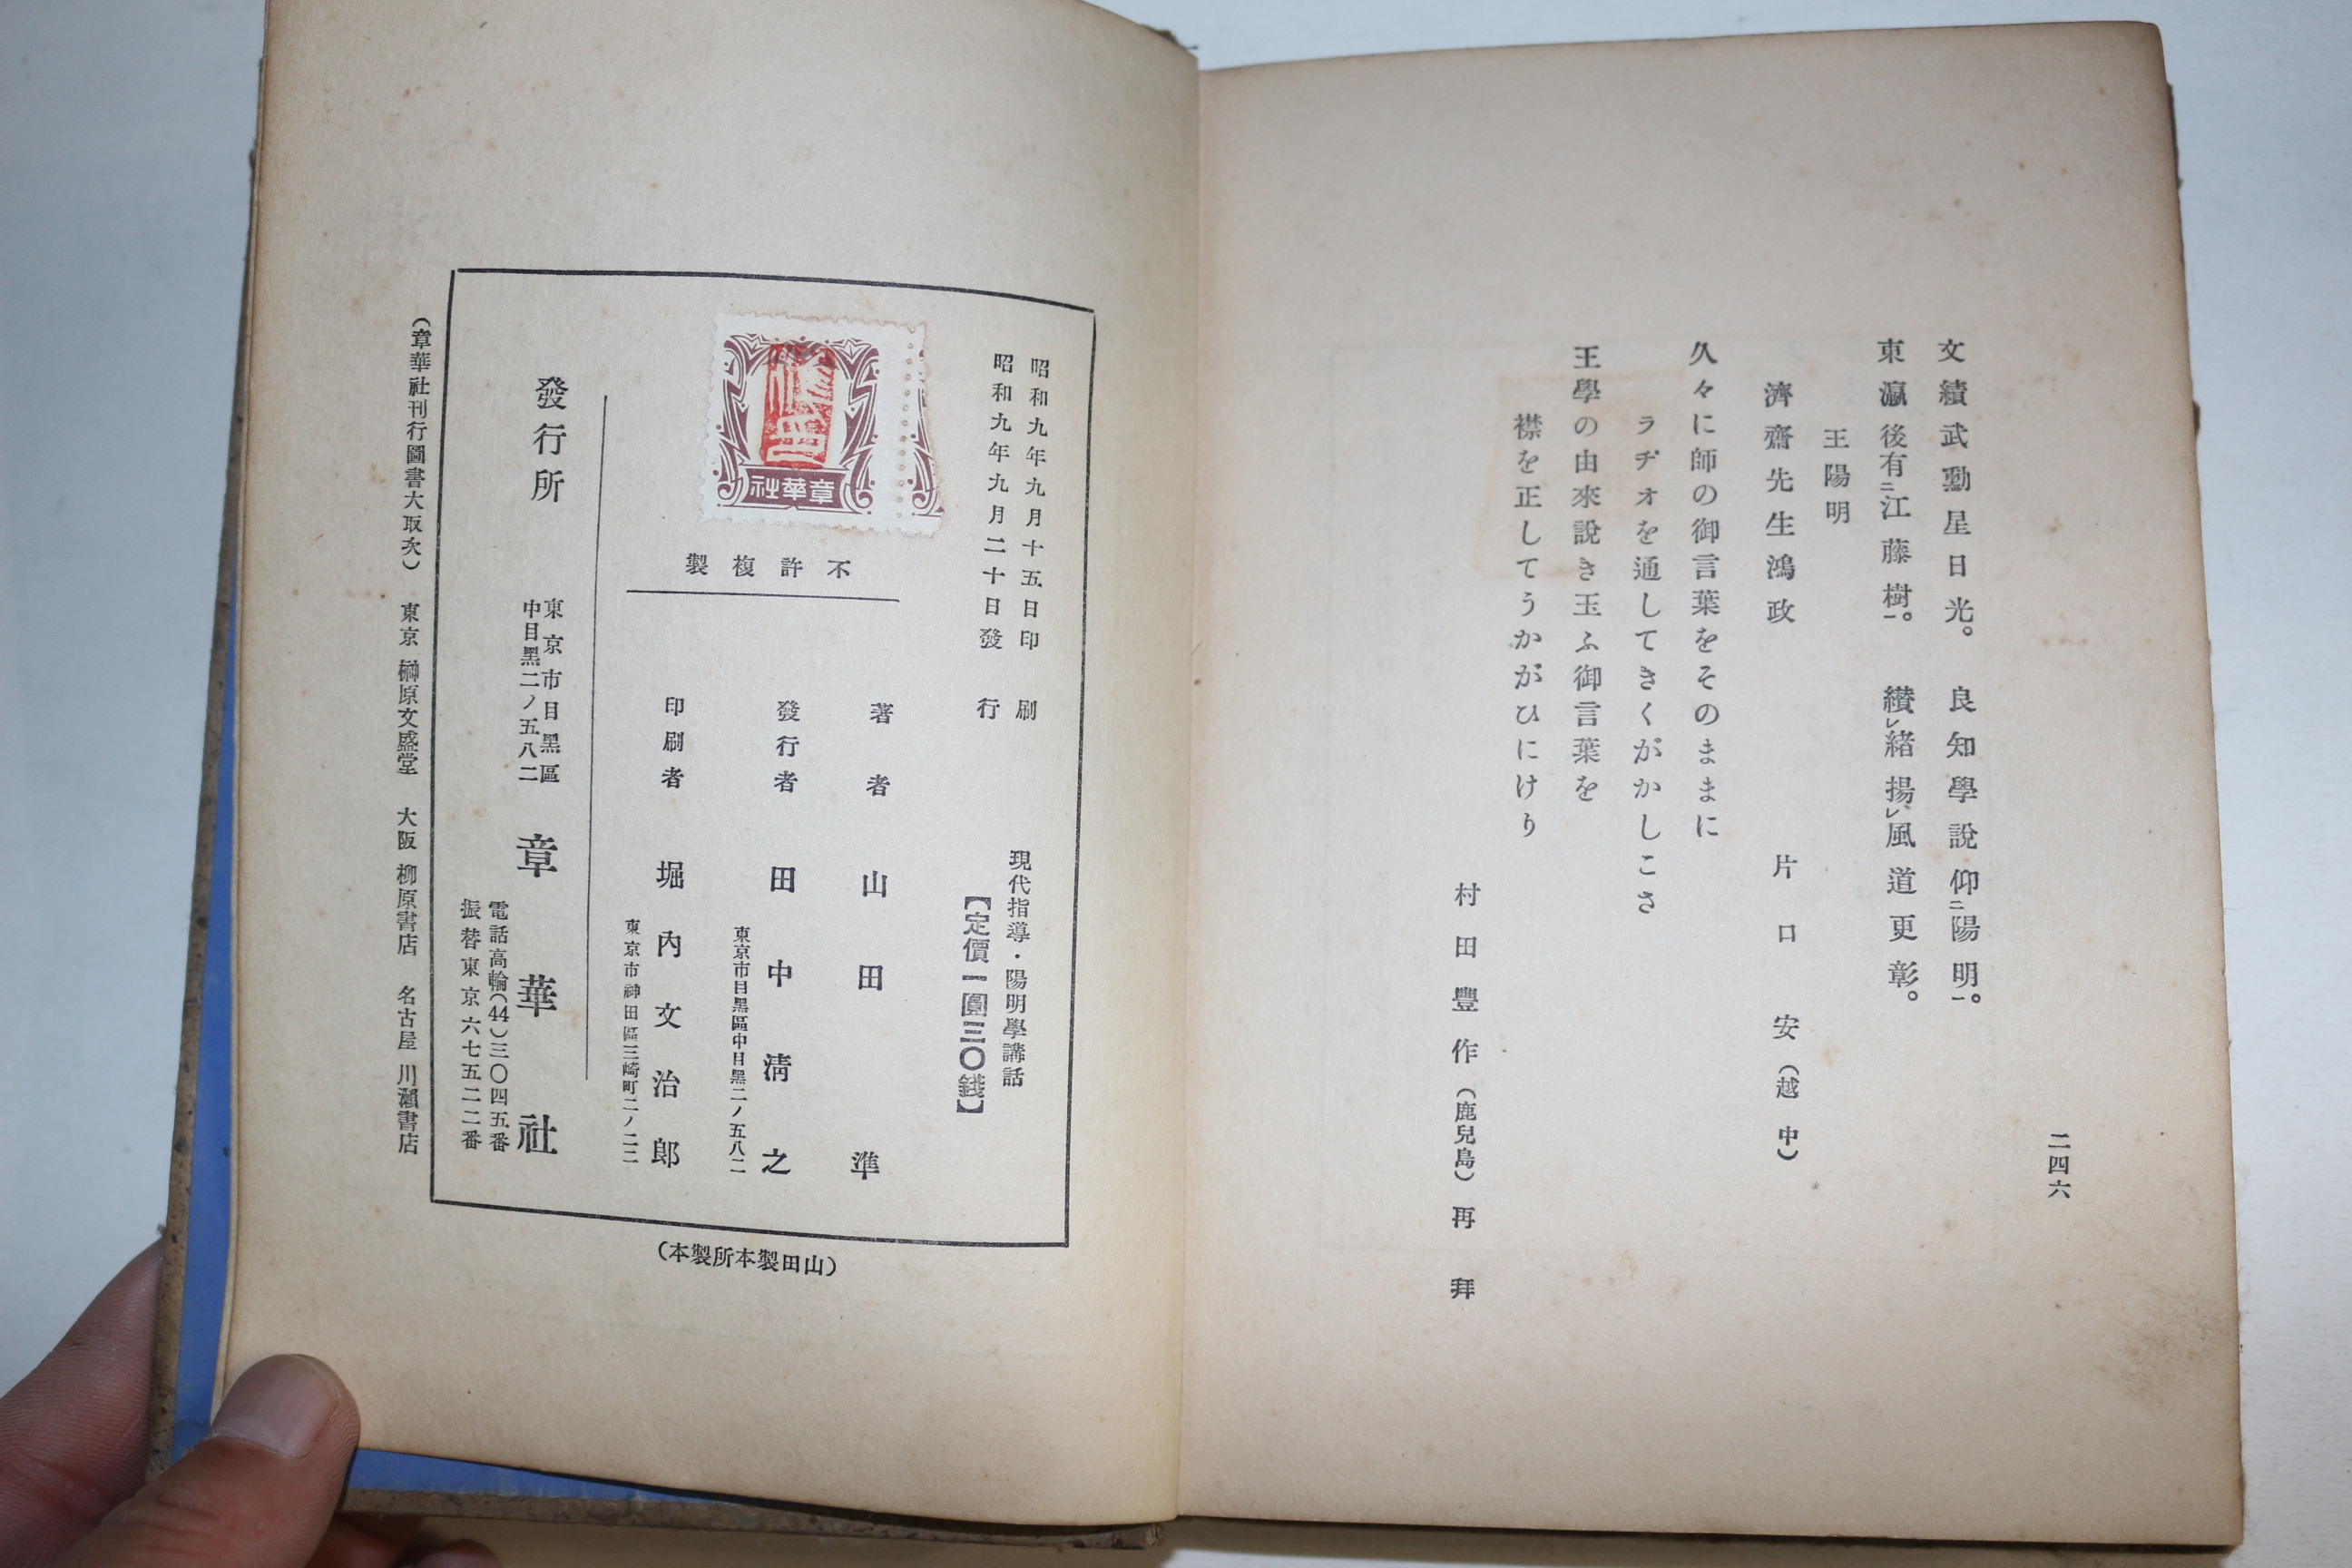 二四六
文績武勳星日光。　良知學說仰㆓陽明㆒。
東瀛後有㆓江藤樹㆒。　纉㆑緖揚㆑風道更彰。
王陽明
濟齋先生鴻政　片口安（越中）
久々に師の御言葉をそのままに
ラヂオを通してきくがかしこさ
王學の由來說き玉ふ御言葉を
襟を正してうかがひにけり
村田豐作（鹿兒島）再拜
昭和九年九月十五日印刷
昭和九年九月二十日發行
現代指導・陽明學講話
【定價一圓三〇錢】
章華社
不許複製
著者　山田準
發行者　田中淸之
東京市目黑區中目黑二ノ五八二
印刷者　堀內文治郎
東京市神田區三崎町二ノ二二
發行所
東京市目黑區
中目黑二ノ五八二
章華社
電話高輪(44)三〇四五番
振替東京六七五二二番
（章華社刊行圖書大取次）　東京　榊原文盛堂　大阪　柳原書店　名古屋　川瀨書店
（山田製本所製本）